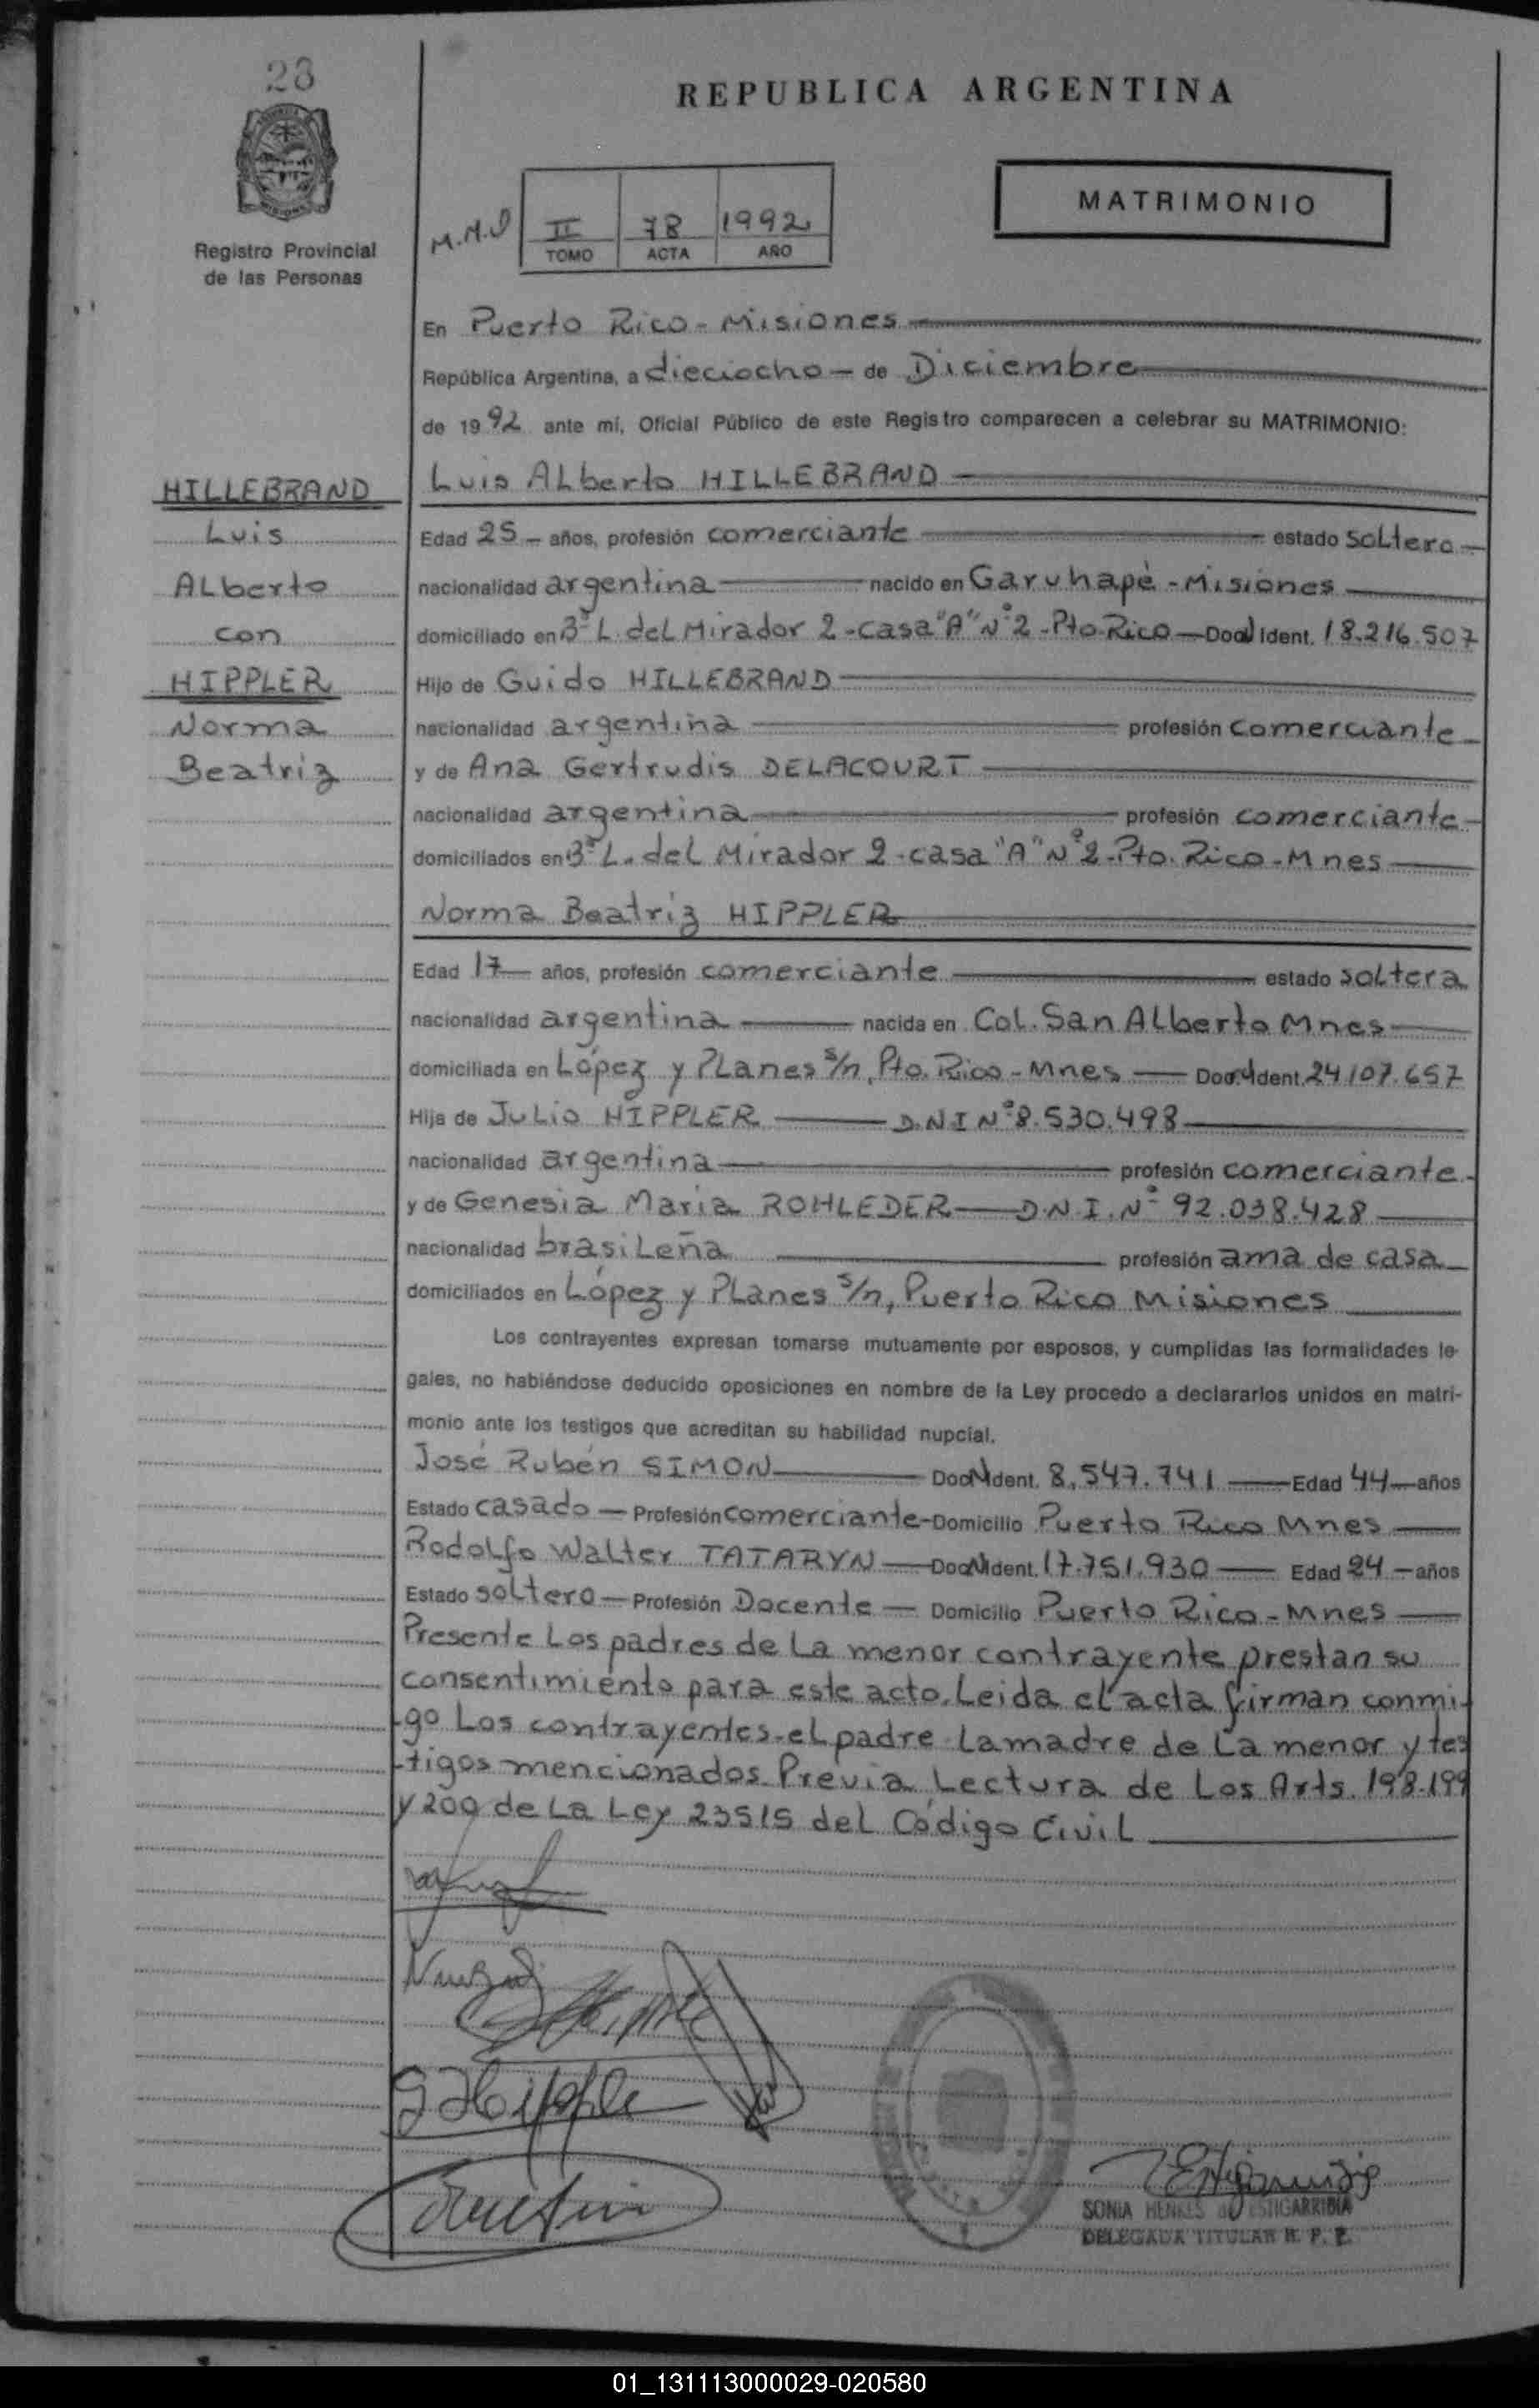 28
REPUBLICA ARGENTINA
MATRIMONIO
Registro Provincial
de las Personas
II 78 1992
TOMO ACTA AÑO
En Puerto Rico - Misiones
República Argentina, a dieciocho — de Diciembre
de 1992 ante mí, Oficial Público de este Registro comparecen a celebrar su MATRIMONIO:
HILLEBRAND
Luis
Alberto
con
HIPPLER
Norma
Beatriz
Luis Alberto HILLEBRAND
Edad 25 — años, profesión comerciante — estado soltero —
nacionalidad argentina — nacido en Garuhapé - Misiones
domiciliado en 3ª L. del Mirador 2 - casa "A" Nº 2 - Pto. Rico — Doc. Ident. 18.216.507
Hijo de Guido HILLEBRAND
nacionalidad argentina — profesión comerciante —
y de Ana Gertrudis DELACOURT
nacionalidad argentina — profesión comerciante —
domiciliados en 3ª L. del Mirador 2 - casa "A" Nº 2 - Pto. Rico - Mnes
Norma Beatriz HIPPLER
Edad 17 — años, profesión comerciante — estado soltera
nacionalidad argentina — nacida en Col. San Alberto Mnes
domiciliada en López y Planes s/n, Pto. Rico - Mnes — Doc. Ident. 24107.657
Hija de Julio HIPPLER — D.N.I Nº 8.530.498
nacionalidad argentina — profesión comerciante.
y de Genesia Maria ROHLEDER — D.N.I. Nº 92.038.428
nacionalidad brasileña — profesión ama de casa
domiciliados en López y Planes s/n, Puerto Rico Misiones
Los contrayentes expresan tomarse mutuamente por esposos, y cumplidas las formalidades le-
gales, no habiéndose deducido oposiciones en nombre de la Ley procedo a declararlos unidos en matri-
monio ante los testigos que acreditan su habilidad nupcial.
José Rubén SIMON — Doc. Ident. 8.547.741 — Edad 44 — años
Estado casado — Profesión comerciante - Domicilio Puerto Rico Mnes
Rodolfo Walter TATARYN — Doc. Ident. 17.751.930 — Edad 24 — años
Estado soltero — Profesión Docente — Domicilio Puerto Rico - Mnes
Presente Los padres de la menor contrayente prestan su
consentimiento para este acto. Leida el acta firman conmi-
-go Los contrayentes - el padre - la madre de la menor y tes
-tigos mencionados. Previa Lectura de Los Arts. 198-199
y 200 de La Ley 23515 del Código Civil
SONIA HENKES de ESTIGARRIBIA
DELEGADA TITULAR R. P. P.
01_131113000029-020580